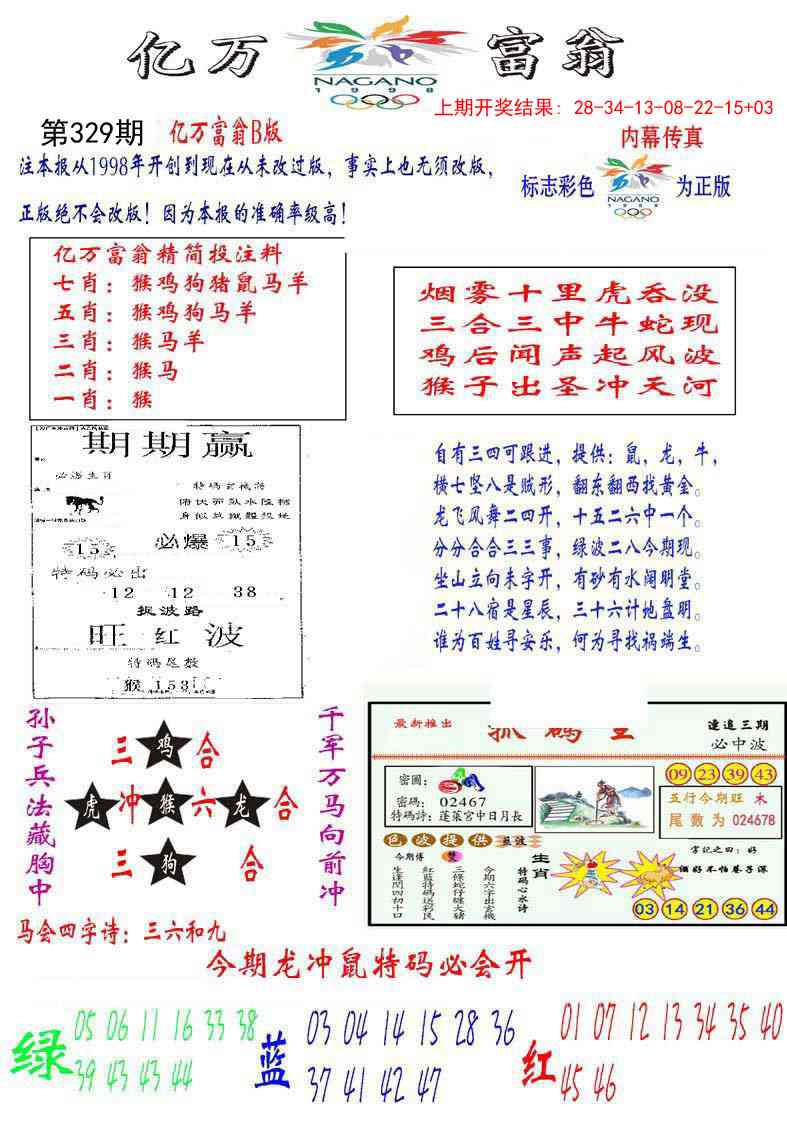 亿万富翁
NAGANO
1998
上期开奖结果: 28-34-13-08-22-15+03
第329期
亿万富翁B版
内幕传真
注本报从1998年开创到现在从未改过版，事实上也无须改版，
正版绝不会改版！因为本报的准确率级高！
标志彩色
NAGANO
1998
为正版
亿万富翁精简投注料
七肖：猴鸡狗猪鼠马羊
五肖：猴鸡狗马羊
三肖：猴马羊
二肖：猴马
一肖：猴
烟雾十里虎吞没
三合三中牛蛇现
鸡后闻声起风波
猴子出圣冲天河
期期赢
必落生肖
15
必爆
15
特码必出
12 12 38
捉波路
旺红波
特码尾数
猴 153
自有三四可跟进，提供：鼠，龙，牛，
横七坚八是贼形，翻东翻西找黄金。
龙飞风舞二四开，十五二六中一个。
分分合合三三事，绿波二八今期现。
坐山立向未字开，有砂有水阔明堂。
二十八宿是星辰，三十六计地盘明。
谁为百姓寻安乐，何为寻找祸端生。
孙子兵法藏胸中
三 鸡 合
虎 冲 猴 六 龙 合
三 狗 合
千军万马向前冲
马会四字诗：三六和九
最新推出
連追三期
必中波
密圖：
密碼： 02467
特碼詩：蓬萊宮中日月長
09 23 39 43
五行今期旺 木
尾數为 024678
色波提供
今期博
生逢閏四初十日
紅藍特碼送彩民
三條蛇仔纏大豬
今期六字出玄機
生肖
特码心水诗
03 14 21 36 44
今期龙冲鼠特码必会开
绿
05 06 11 16 33 38
39 43 43 44
蓝
03 04 14 15 28 36
37 41 42 47
红
01 07 12 13 34 35 40
45 46